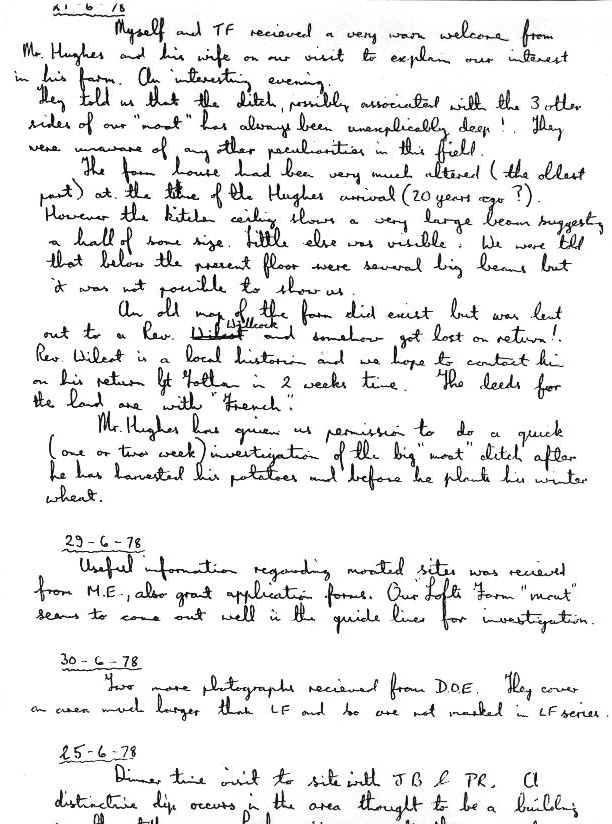 21-6-78
Myself and TF recieved a very warm welcome from
Mr. Hughes and his wife on our visit to explain our interest
in his farm. An interesting evening.
They told us that the ditch, possibly associated with the 3 other
sides of our "moat" has always been unexplicably deep!. They
were unaware of any other peculiarities in this field.
The farm house had been very much altered (the oldest
part) at the time of the Hughes arrival (20 years ago?).
However the kitchen ceiling shows a very large beam suggesting
a hall of some size. Little else was visible. We were told
that below the present floor were several big beams but
it was not possible to show us.
An old map of the farm did exist but was lent
out to a Rev. Wilcot Willcock and somehow got lost on return!.
Rev. Wilcot is a local historian and we hope to contact him
on his return to in 2 weeks time. The deeds for
the land are with "French".
Mr. Hughes has given us permission to do a quick
(one or two week) investigation of the big "moat" ditch after
he has harvested his potatoes and before he plants his winter
wheat.
29-6-78
Useful information regarding moated sites was recieved
from M.E., also grant application forms. Our Lofts Farm "moat"
seems to come out well in the guide lines for investigation.
30-6-78
Two more photographs recieved from D.O.E. They cover
an area much larger than LF and so are not marked in LF series.
25-6-78
Dinner time visit to site with JB & PR. A
distinctive dip occurs in the area thought to be a building